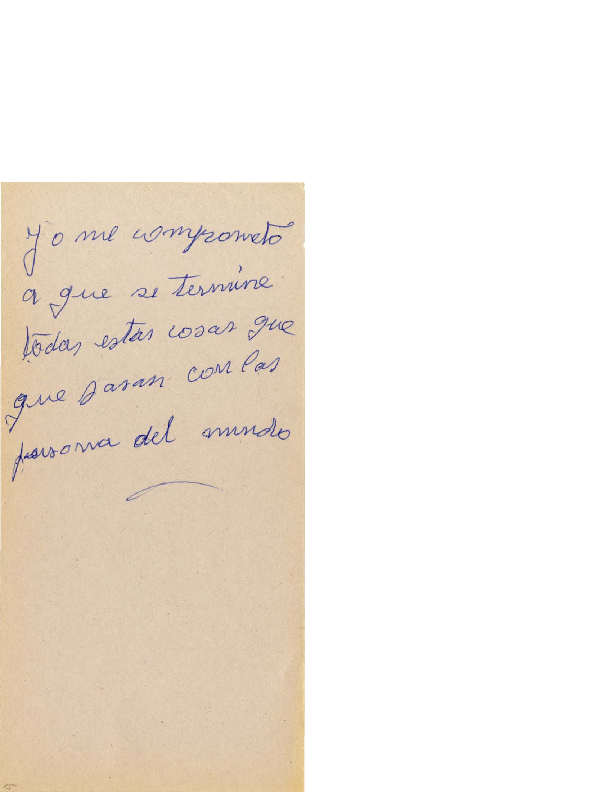 Yo me comprometo
a que se termine
todas estas cosas que
que pasan con las
persona del mundo
15